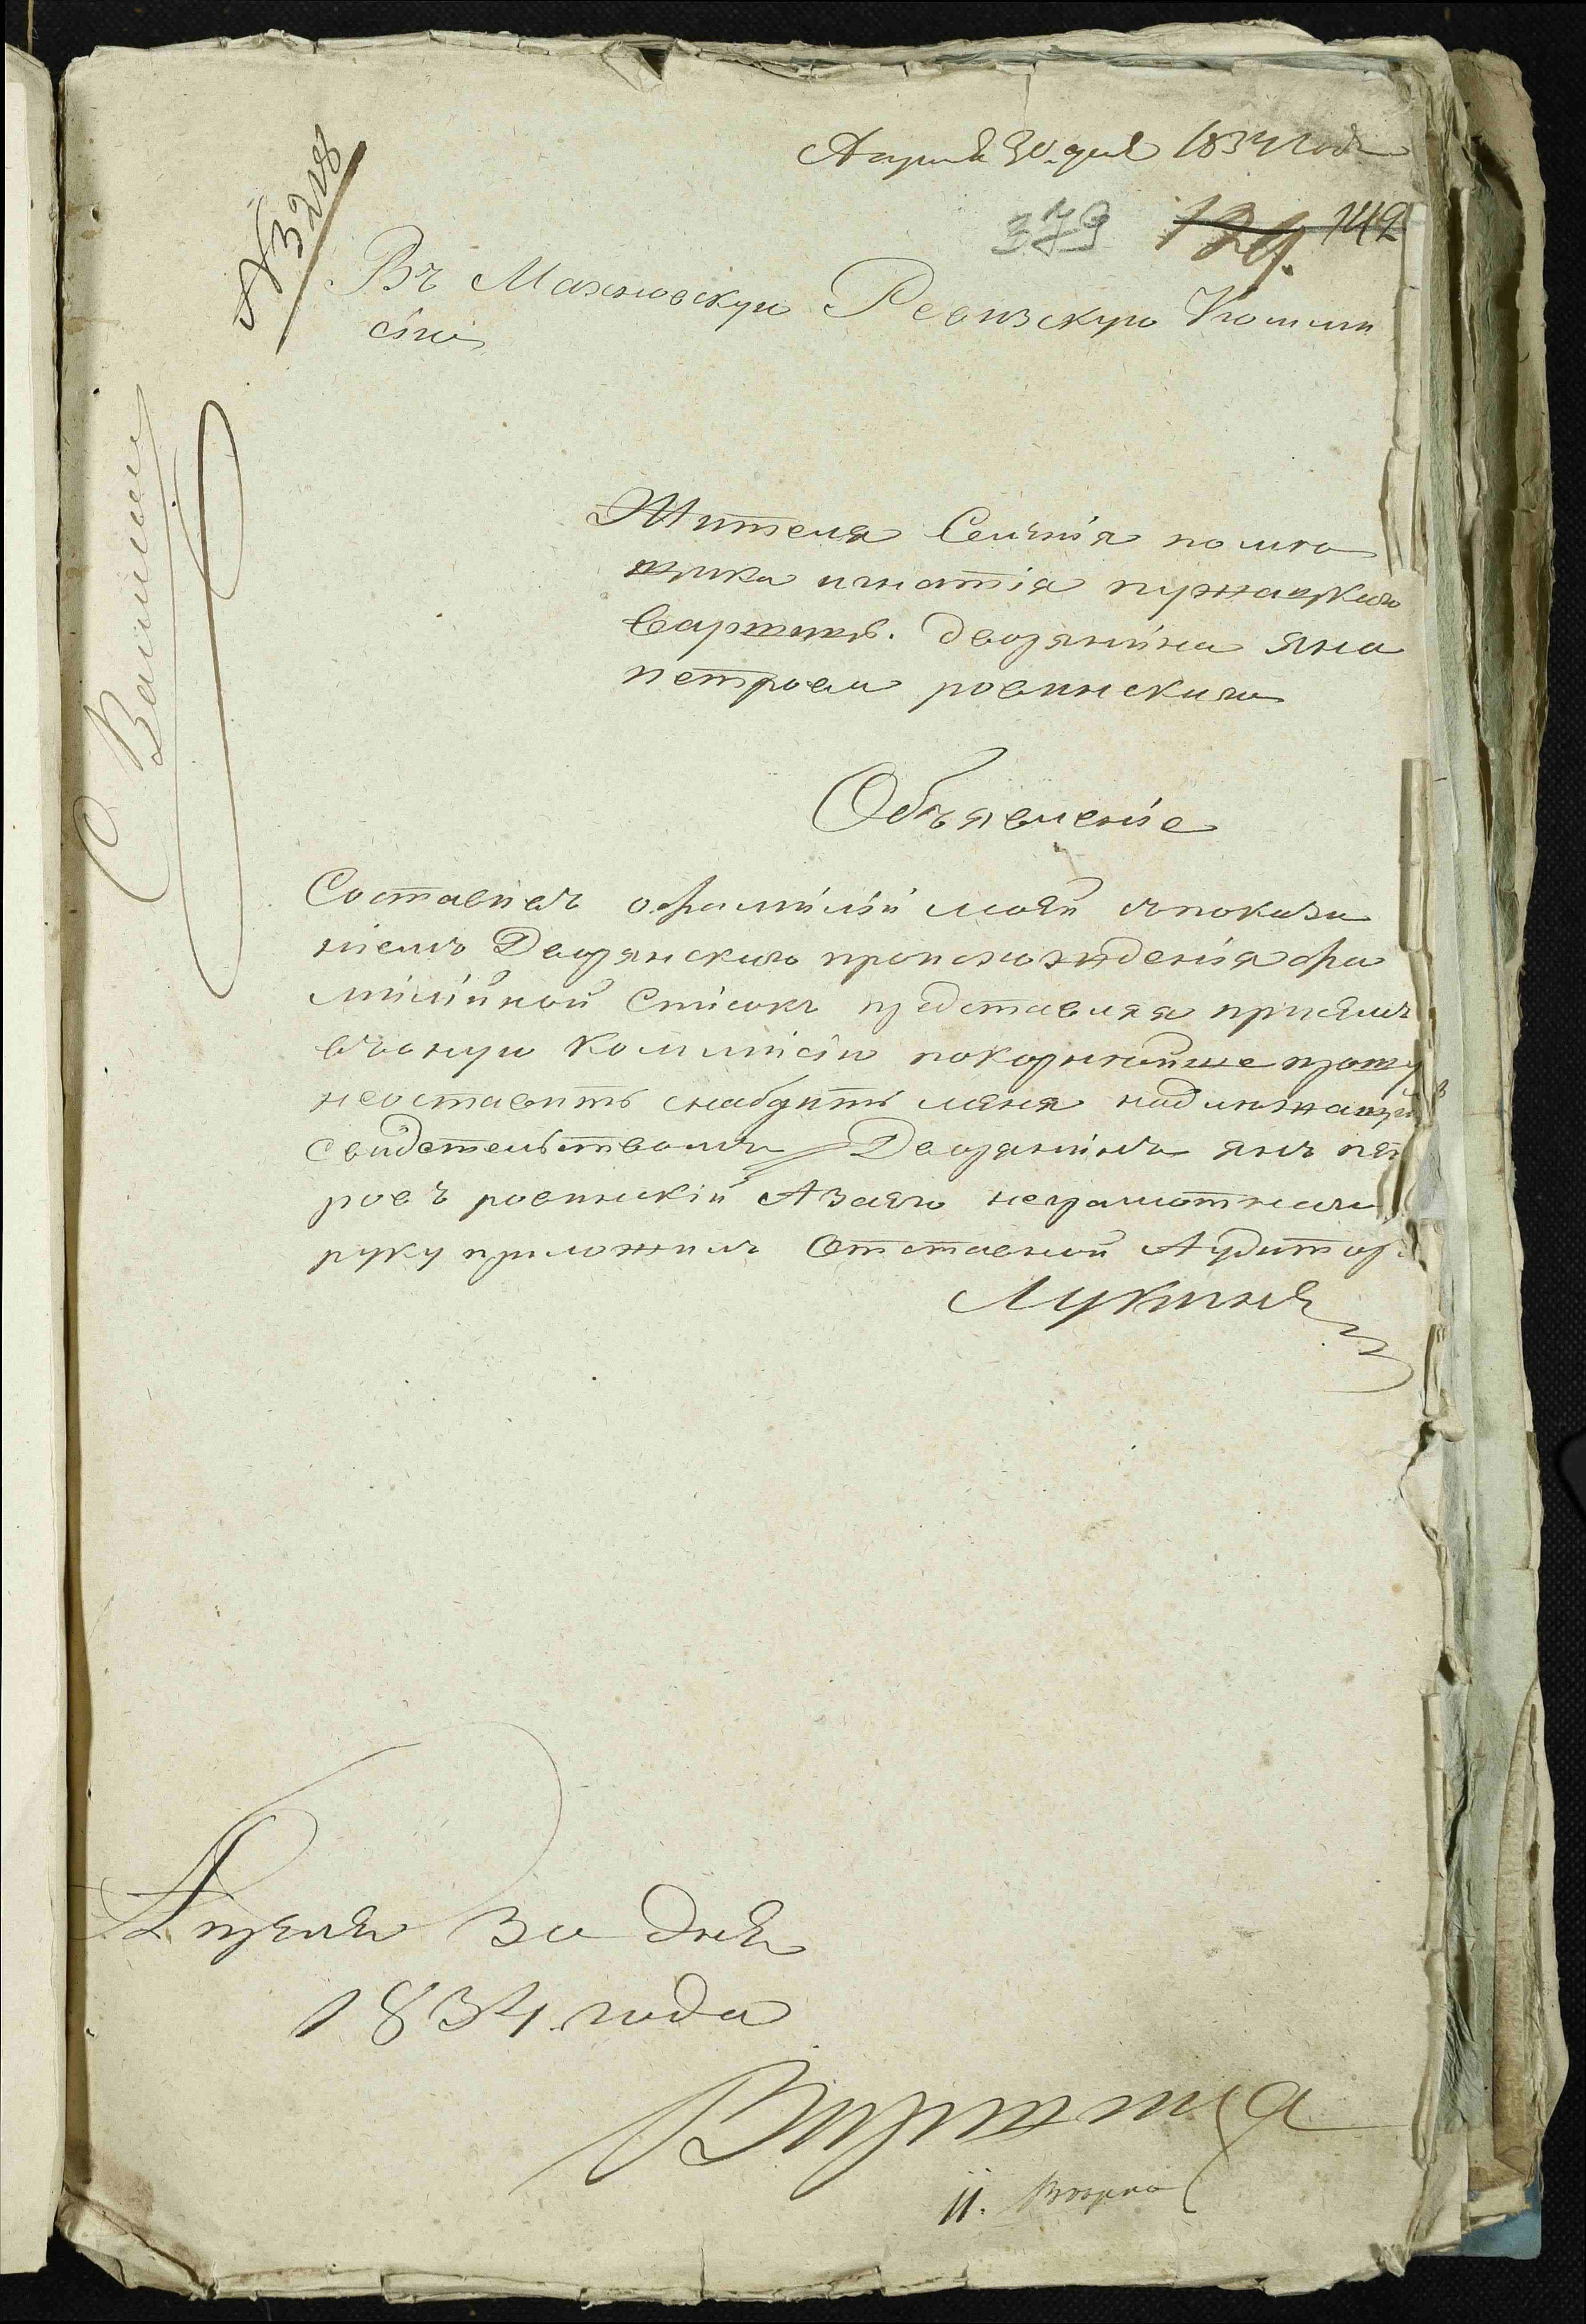 Апреля 30 дня 1834 года
№ 3218
379 129. 142
Въ Махновскую Ревизскую Коммі
сію
Жителя Селенія помѣ
щика игнатія
дворянина яна
петрова ровинскаго
Объявленіе
Составивъ о фамиліи моей съ показа
ніемъ Дворянскаго происхожденія фа
милійной Списокъ представляя присемъ
въ оную коммисію покорнейше прошу
неоставить снабдить меня надлежащемъ
свидетельствомъ Дворянинъ янъ пет
ровъ ровинскій А заего неграмотнаго
руку приложилъ Отставной Аудитор
Лукинъ
Апреля 30 дня
1834 года
11.